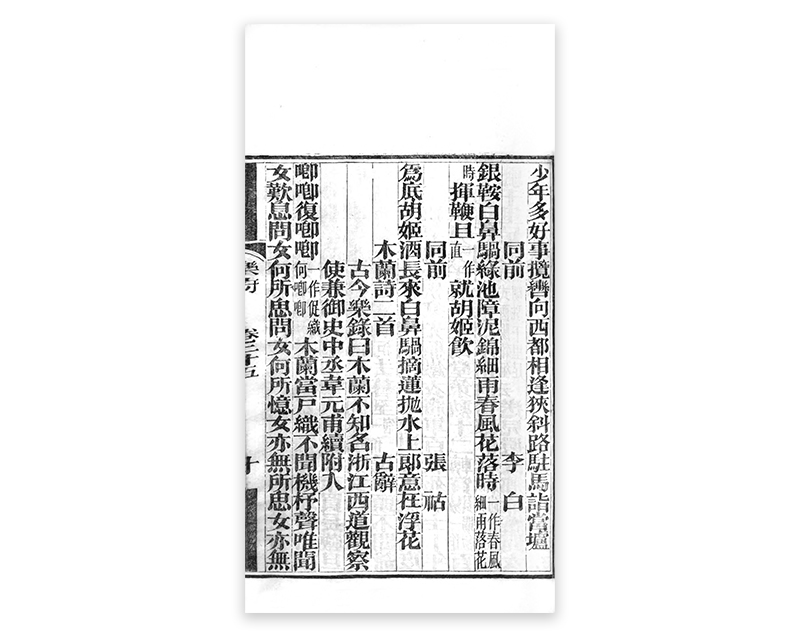 少年多好事攬轡向西都相逢狹斜路駐馬詣當壚
同前 李白
銀鞍白鼻騧綠池障泥錦細雨春風花落時一作春風細雨落花
時揮鞭且一作直就胡姬飲
同前 張祜
為底胡姬酒長來白鼻騧摘蓮抛水上郎意在浮花
木蘭詩二首 古辭
古今樂錄曰木蘭不知名浙江西道觀察
使兼御史中丞韋元甫續附入
唧唧復唧唧一作促織何唧唧木蘭當戸織不聞機杼聲唯聞
女歎息問女何所思問女何所憶女亦無所思女亦無
樂府 卷二十五 十